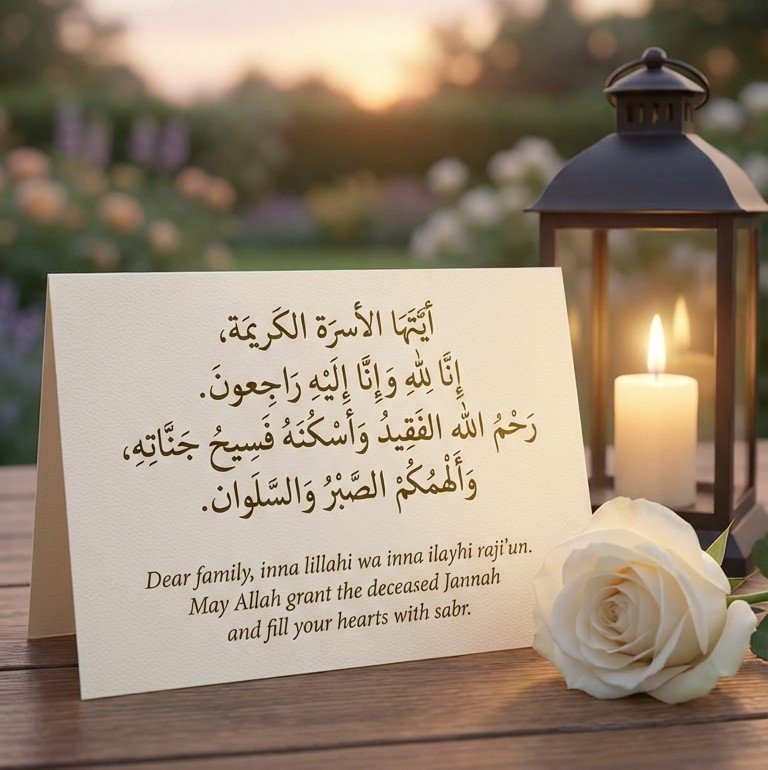 أيَّتُهَا الأسرَة الكَريمَة،
إِنَّا لِلهِ وَإِنَّا إِلَيْهِ رَاجِعونَ.
رَحْمُ الله الفَقِيدُ وَأَسْكُنَهُ فَسِيحُ جَنَّاتِهِ،
وَأَلْهُمُكُمْ الصَّبْرُ وَالسَّلَوان.
Dear family, inna lillahi wa inna ilayhi raji'un.
May Allah grant the deceased Jannah
and fill your hearts with sabr.